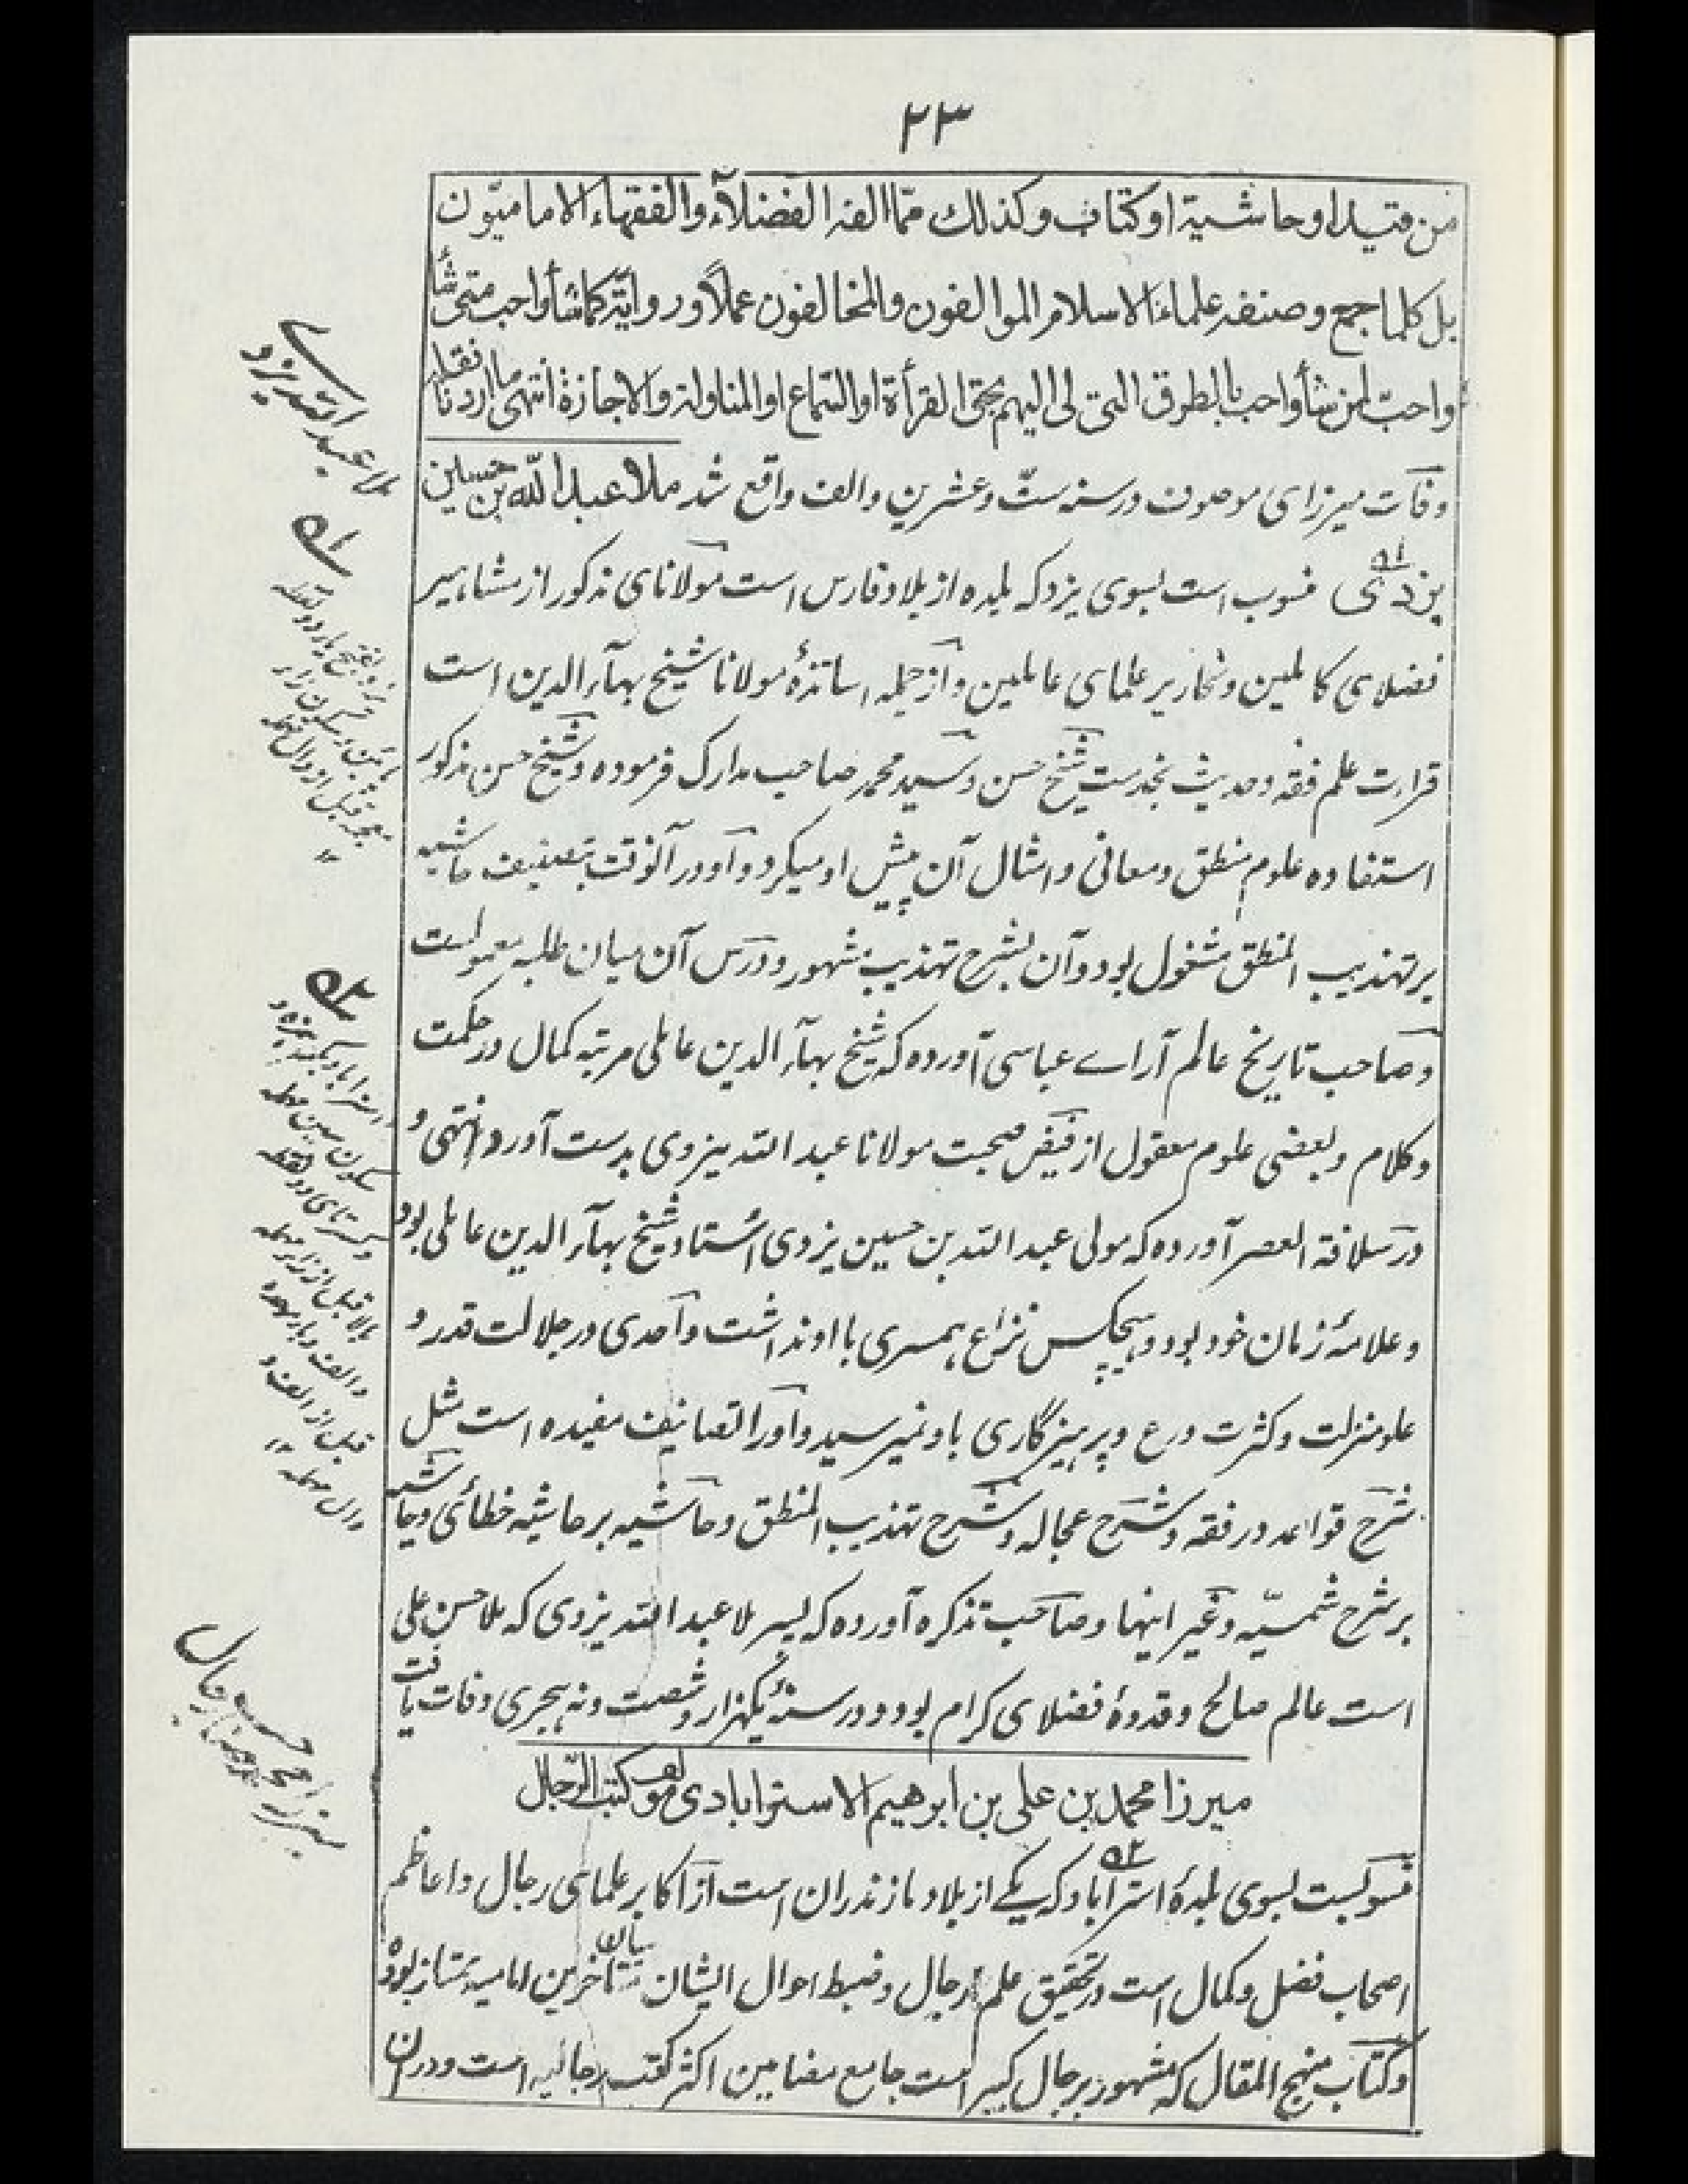 ٢٣
من قتيل او حاشية او كتاب وكذلك ممّا الفه الفضلآء والفقهاء الاماميّون
بل كلما جمع وصنفه علماء الاسلام الموالفون والمخالفون عملاً ورواية كما شأواحب متى شأ
واحبّ لمن شأواحب بالطرق التى لى اليهم بحق القرأة او السّماع او المناولة والاجازة انتهى ما اردنا نقله
وفات میرزای موصوف در سنه ستّ وعشرین والف واقع شد ملا عبد اللّه بن حسین
یزدی منسوب است بسوی یزد که بلده از بلاد فارس است مولانای مذکور از مشاهیر
فضلای کاملین ونحاریر علمای عاملین واز جمله اساتذهٔ مولانا شیخ بهآء الدین است
قراءت علم فقه وحدیث بخدمت شیخ حسن وسید محمد صاحب مدارک فرموده وشیخ حسن مذکور
استفاده علوم منطق ومعانی وامثال آن پیش او میکرد واو در آنوقت بتصنیف حاشیه
بر تهذیب المنطق مشغول بود وآن بشرح تهذیب مشهور ودرس آن میان طلبه معمولست
وصاحب تاریخ عالم آرای عباسی آورده که شیخ بهآء الدین عاملی مرتبه کمال در حکمت
وکلام وبعضی علوم معقول از فیض صحبت مولانا عبد الله یزدی بدست آورد انتهی و
در سلافة العصر آورده که مولی عبد الله بن حسین یزدی استاد شیخ بهآء الدین عاملی بود
وعلامهٔ زمان خود بود وهیچکس نزاع همسری با او نداشت واحدی در جلالت قدر و
علو منزلت وکثرت ورع وپرهیزگاری باو نمیرسید واورا تصانیف مفیده است مثل
شرح قواعد در فقه وشرح عجاله وشرح تهذیب المنطق وحاشیه بر حاشیه خطائی وحاشیه
بر شرح شمسیّه وغیر اینها وصاحب تذکره آورده که پسر ملا عبد الله یزدی که ملا حسن علی
است عالم صالح وقدوهٔ فضلای کرام بود ودر سنهٔ یکهزار وشصت ونه هجری وفات یافت
میرزا محمد بن علی بن ابرهیم الاسترابادی مؤلف کتب الرّجال
منسوبست بسوی بلدهٔ استراباد که یکے از بلاد مازندران است از اکابر علمای رجال واعاظم
اصحاب فضل وکمال است در تحقیق علم رجال وضبط احوال ایشان میان متاخرین امامیه ممتاز بوده
وکتاب منهج المقال که مشهور برجال کبیر است جامع مضامین اکثر کتب رجالیه است ودران
ملا عبد الله یزدی
۵۱
۵۲